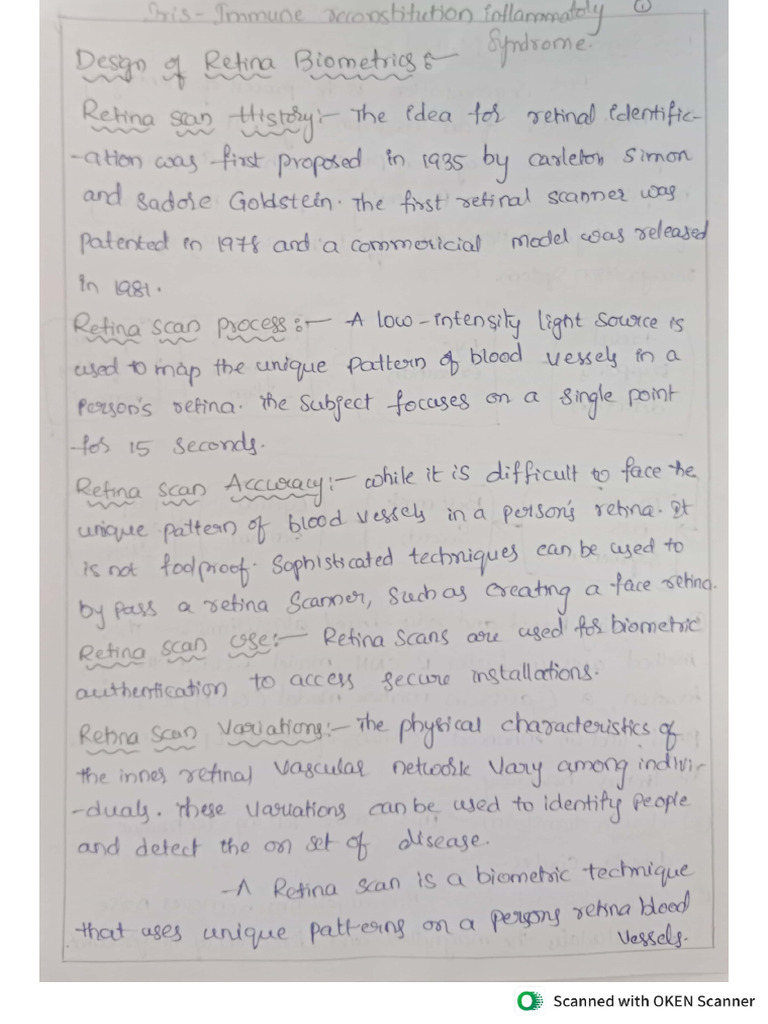 Iris - Immune reconstitution inflammatoly ①
Syndrome.
Design of Retina Biometrics :-
Retina scan History:- The idea for retinal identific-
-ation was first proposed in 1935 by carleton Simon
and Sadore Goldstein. The first retinal scanner was
patented in 1978 and a commericial model was released
in 1981.
Retina scan process:- A low-intensity light source is
used to map the unique pattern of blood vessels in a
person's retina. The subject focuses on a single point
for 15 seconds.
Retina scan Accuracy:- while it is difficult to face the
unique pattern of blood vessels in a person's retina. It
is not foolproof. Sophisticated techniques can be used to
by pass a retina Scanner, such as creating a face retina.
Retina scan use:- Retina scans are used for biometric
authentication to access secure installations.
Retina scan Variations:- The physical characteristics of
the inner retinal vascular network vary among indivi-
-duals. These variations can be used to identify people
and detect the on set of disease.
-A Retina scan is a biometric technique
that uses unique patterns on a persons retina blood
vessels.
Scanned with OKEN Scanner